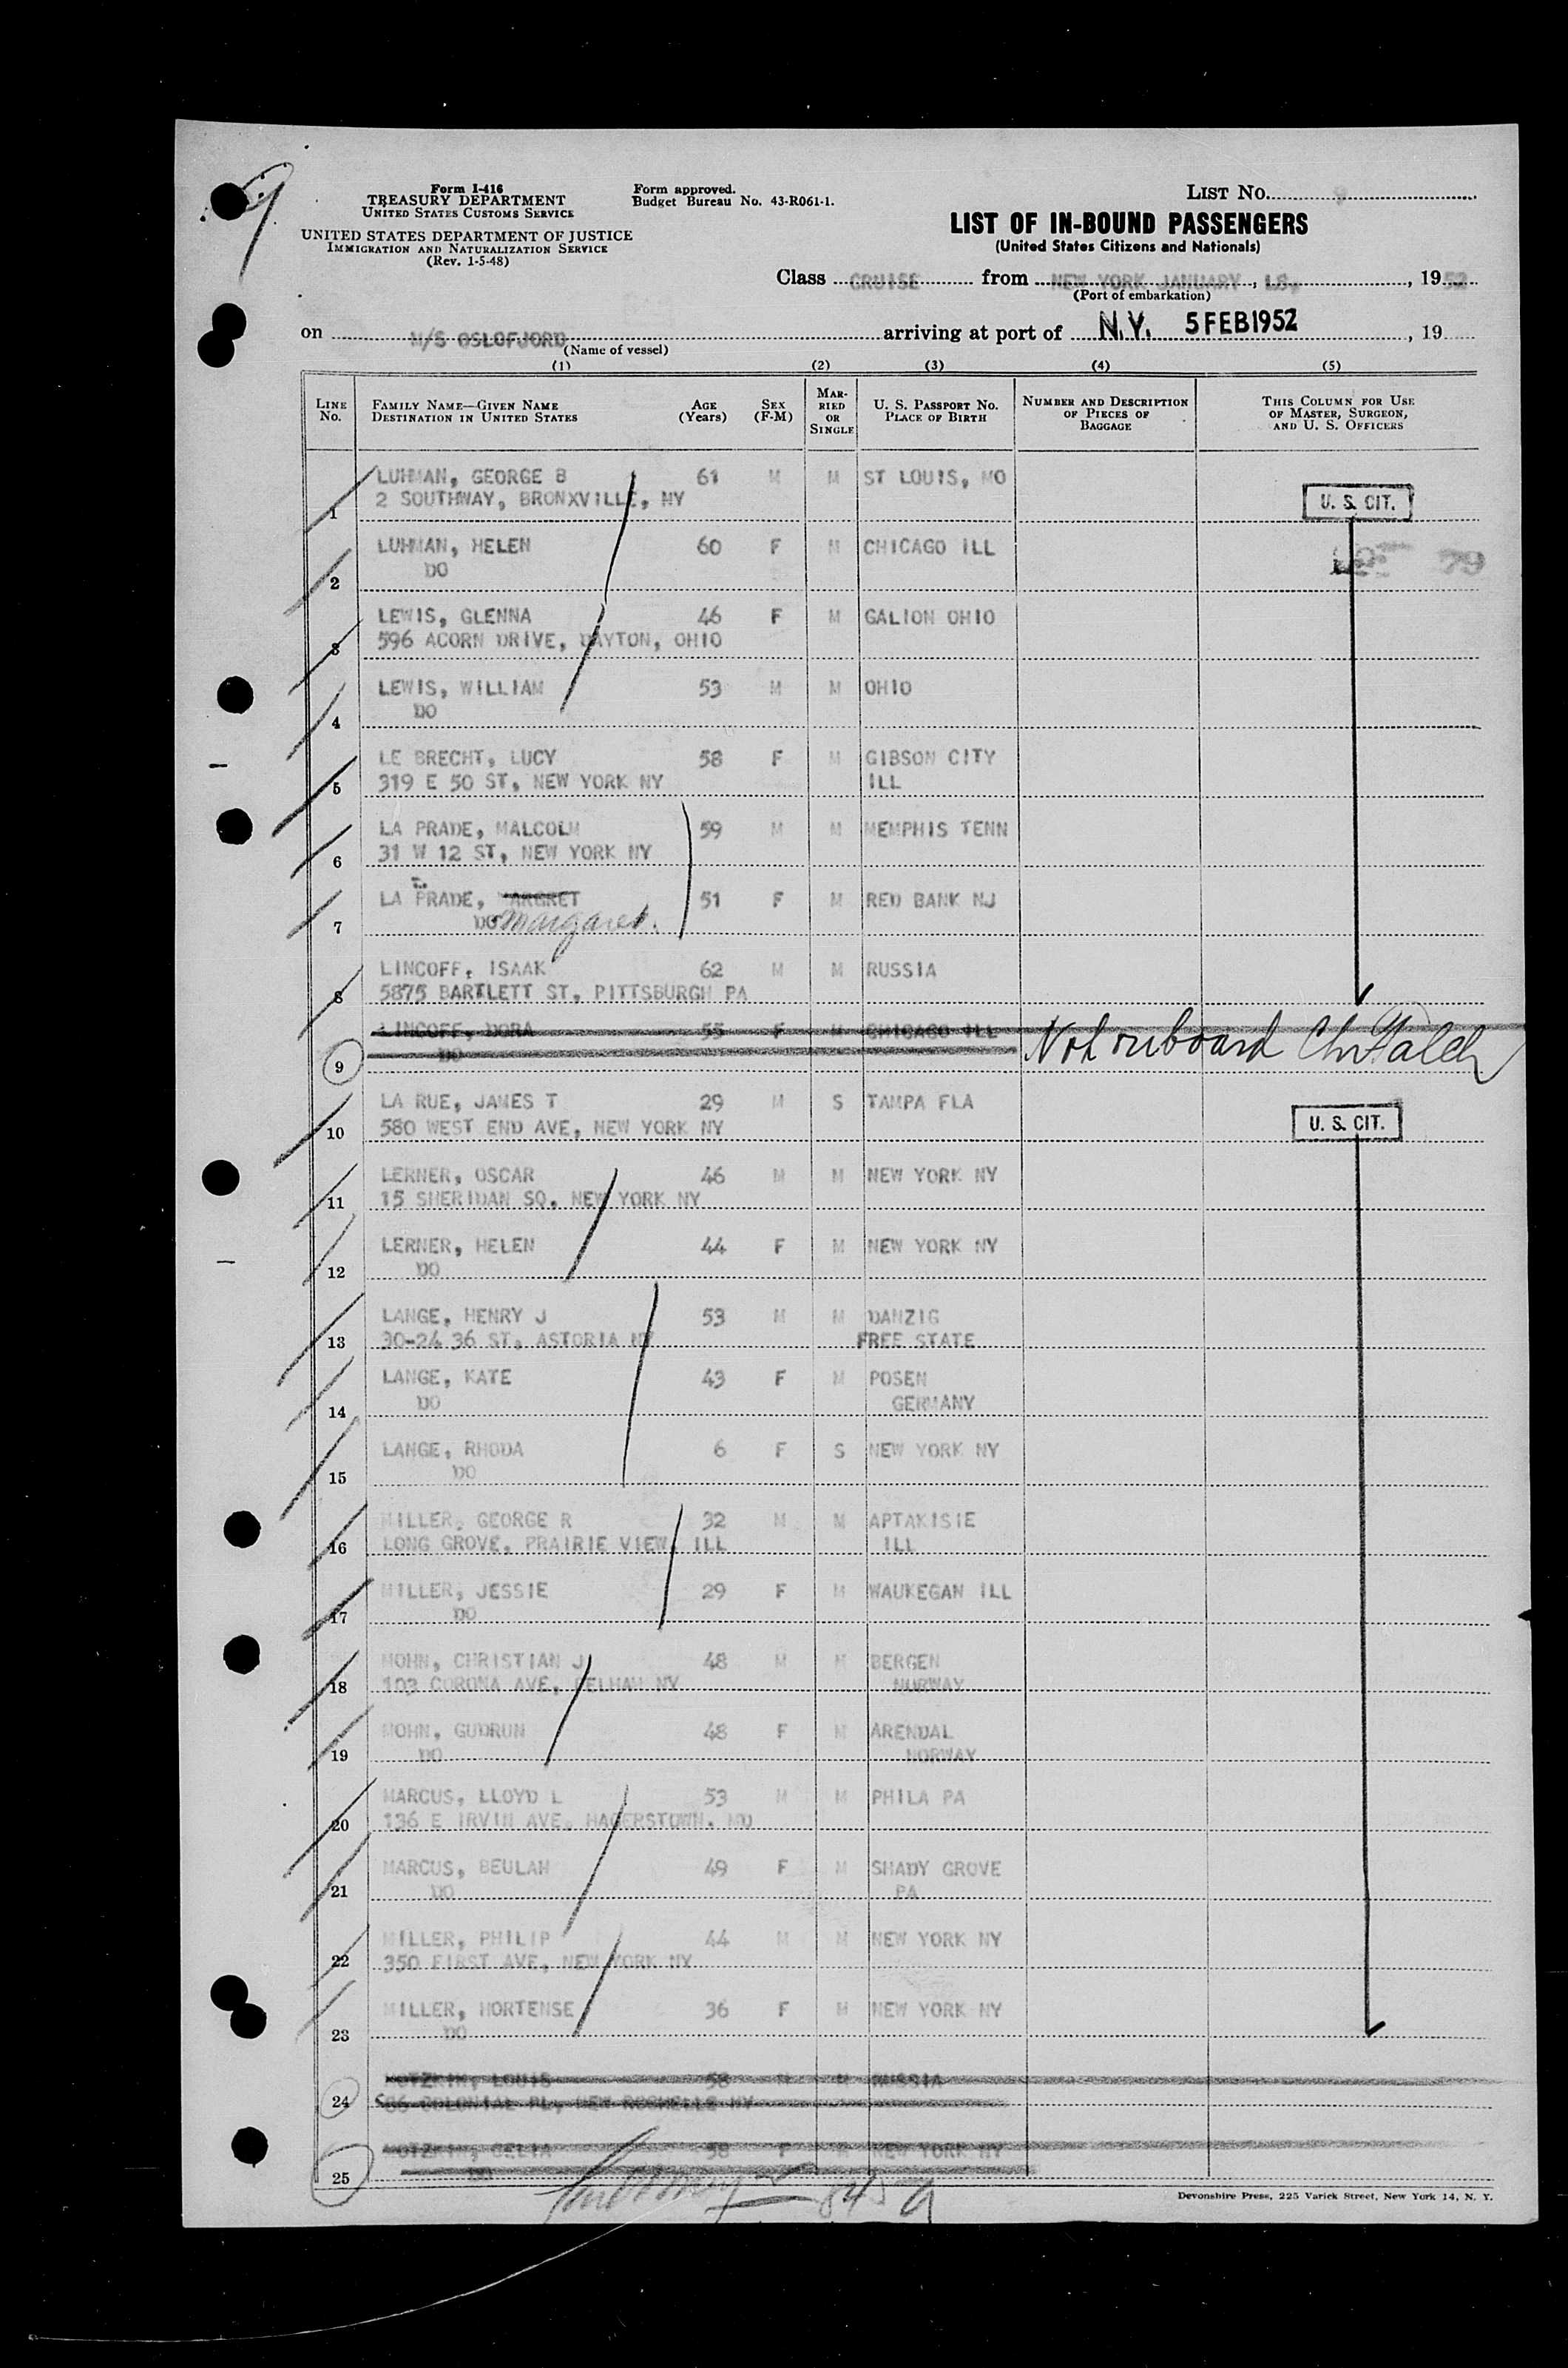 9
Form I-416
TREASURY DEPARTMENT
UNITED STATES CUSTOMS SERVICE
UNITED STATES DEPARTMENT OF JUSTICE
IMMIGRATION AND NATURALIZATION SERVICE
(Rev. 1-5-48)
Form approved.
Budget Bureau No. 43-R061-1.
LIST NO. 9
LIST OF IN-BOUND PASSENGERS
(United States Citizens and Nationals)
Class CRUISE from NEW YORK JANUARY , 18, , 1952
(Port of embarkation)
on M/S OSLOFJORD arriving at port of N.Y. 5 FEB 1952 , 19
(Name of vessel)
(1) (2) (3) (4) (5)
LINE NO. FAMILY NAME—GIVEN NAME DESTINATION IN UNITED STATES AGE (Years) SEX (F-M) MARRIED OR SINGLE U. S. PASSPORT NO. PLACE OF BIRTH NUMBER AND DESCRIPTION OF PIECES OF BAGGAGE THIS COLUMN FOR USE OF MASTER, SURGEON, AND U. S. OFFICERS
LUHMAN, GEORGE B 61 M M ST LOUIS, MO
1 2 SOUTHWAY, BRONXVILLE, NY U. S. CIT.
LUHMAN, HELEN 60 F M CHICAGO ILL 79
2 DO
LEWIS, GLENNA 46 F M GALION OHIO
3 596 ACORN DRIVE, DAYTON, OHIO
LEWIS, WILLIAM 53 M M OHIO
4 DO
LE BRECHT, LUCY 58 F M GIBSON CITY
5 319 E 50 ST, NEW YORK NY ILL
LA PRADE, MALCOLM 59 M M MEMPHIS TENN
6 31 W 12 ST, NEW YORK NY
LA PRADE, MARGRET 51 F M RED BANK NJ
7 DO Margaret.
LINCOFF, ISAAK 62 M M RUSSIA
8 5875 BARTLETT ST, PITTSBURGH PA
LINCOFF, DORA 55 F M CHICAGO ILL Not onboard
9 DO
LA RUE, JAMES T 29 M S TAMPA FLA
10 580 WEST END AVE, NEW YORK NY U. S. CIT.
LERNER, OSCAR 46 M M NEW YORK NY
11 15 SHERIDAN SQ, NEW YORK NY
LERNER, HELEN 44 F M NEW YORK NY
12 DO
LANGE, HENRY J 53 M M DANZIG
13 30-24 36 ST, ASTORIA NY FREE STATE
LANGE, KATE 43 F M POSEN
14 DO GERMANY
LANGE, RHODA 6 F S NEW YORK NY
15 DO
MILLER, GEORGE R 32 M M APTAKISIE
16 LONG GROVE, PRAIRIE VIEW, ILL ILL
MILLER, JESSIE 29 F M WAUKEGAN ILL
17 DO
MOHN, CHRISTIAN J 48 M M BERGEN
18 103 CORONA AVE, PELHAM NY NORWAY
MOHN, GUDRUN 48 F M ARENDAL
19 DO NORWAY
MARCUS, LLOYD L 53 M M PHILA PA
20 136 E IRVIN AVE, HAGERSTOWN, MD
MARCUS, BEULAH 49 F M SHADY GROVE
21 DO PA
MILLER, PHILIP 44 M M NEW YORK NY
22 350 FIRST AVE, NEW YORK NY
MILLER, HORTENSE 36 F M NEW YORK NY
23 DO
LOUIS 58 M M RUSSIA
24 COLONIAL PL, NEW ROCHELLE NY
CELIA 58 F M NEW YORK NY
25 DO
Devonshire Press, 225 Varick Street, New York 14, N. Y.